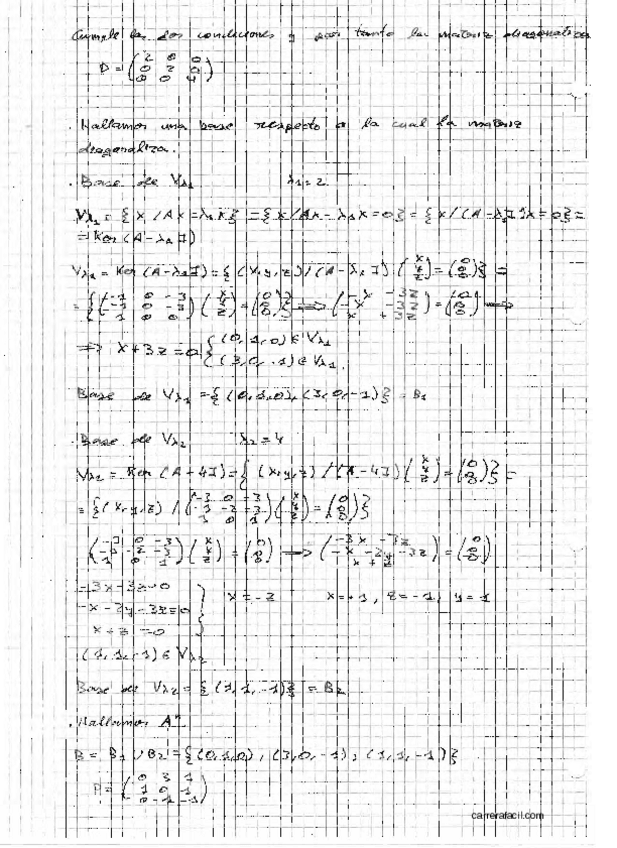 Cumple las dos condiciones y por tanto la matriz diagonaliza
D = (2 0 0
0 2 0
0 0 4)
. Hallamos una base respecto a la cual la matriz
diagonaliza.
. Base de Vλ1 λ1 = 2
Vλ1 = { x / Ax = λ1x} = { x / Ax - λ1x = 0} = { x / (A - λ1I)x = 0} =
= Ker (A - λ1I)
Vλ1 = Ker (A - λ1I) = { (x, y, z) / (A - λ1I) (x y z) = (0 0 0)} =
= {(-1 0 -3
-1 0 -3
1 0 3) (x y z) = (0 0 0)} => (-x -3z
-x -3z
x +3z) = (0 0 0) =>
=> x + 3z = 0 { (0, 1, 0) ∈ Vλ1
(3, 0, -1) ∈ Vλ1
Base de Vλ1 = { (0, 1, 0), (3, 0, -1)} = B1
. Base de Vλ2 λ2 = 4
Vλ2 = Ker (A - 4I) = { (x, y, z) / (A - 4I) (x y z) = (0 0 0)} =
= { (x, y, z) / (-3 0 -3
-1 -2 -3
1 0 1) (x y z) = (0 0 0)}
(-3 0 -3
-1 -2 -3
1 0 1) (x y z) = (0 0 0) => (-3x -3z
-x -2y -3z
x + z) = (0 0 0)
-3x - 3z = 0
-x - 2y - 3z = 0 } x = -z x = +1, z = -1, y = 1
x + z = 0
(1, 1, -1) ∈ Vλ2
Base de Vλ2 = { (1, 1, -1)} = B2
. Hallamos Aⁿ
B = B1 ∪ B2 = { (0, 1, 0), (3, 0, -1), (1, 1, -1)}
P = (0 3 1
1 0 1
0 -1 -1)
carrerafacil.com